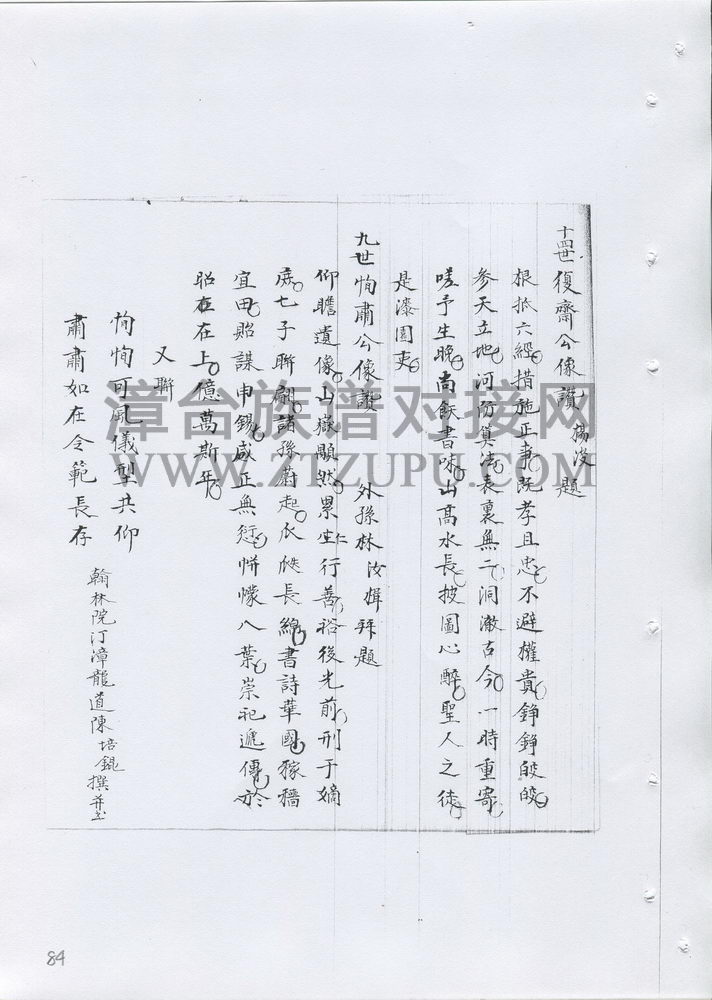 十四世復齋公像讚 楊浚題
根柢六經措施正事既孝且忠不避權貴錚錚皎皎
參天立地河防算法表裏無二洞澈古今一時重寄
嗟予生晚尚飫書味山高水長披圖心醉聖人之徒
是漆園吏
九世恂肅公像讚 外孫林汝楫拜題
仰瞻遺像山嶽顯然累仁行善裕後光前刑于嫡
庶七子聯翩諸孫蔚起瓜瓞長綿書詩華國稼穡
宜田貽謀申錫咸正無愆帡幪八葉崇祀遞傳於
昭在上億萬斯年
又聯
恂恂可風儀型共仰
肅肅如在令範長存
翰林院汀漳龍道陳培錕撰并書
漳台族谱对接网
WWW.ZZZUPU.COM
84